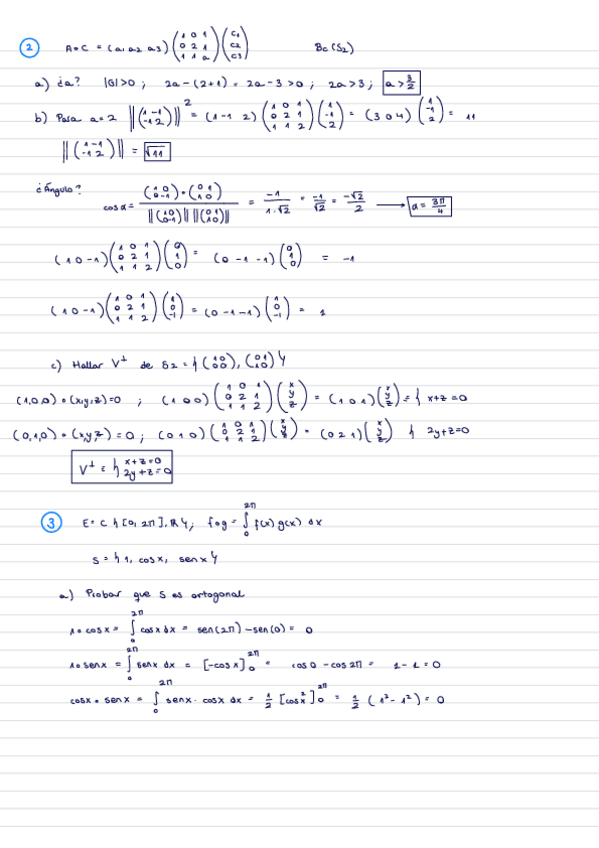 2 A∘C = (a1 a2 a3) (1 0 1 / 0 2 1 / 1 1 a) (c1 / c2 / c3) Bc(S2)
a) ¿a? |G|>0 ; 2a-(2+1) = 2a-3>0 ; 2a>3 ; a>3/2
b) Para a=2 ||(1 -1 / -1 2)||² = (1 -1 2) (1 0 1 / 0 2 1 / 1 1 2) (1 / -1 / 2) = (3 0 4) (1 / -1 / 2) = 11
||(1 -1 / -1 2)|| = √11
¿Ángulo? cos α = (1 0 / 0 -1)∘(0 1 / 1 0) / ||(1 0 / 0 -1)|| ||(0 1 / 1 0)|| = -1 / 1·√2 = -1/√2 = -√2/2 → α = 3π/4
(1 0 -1) (1 0 1 / 0 2 1 / 1 1 2) (0 / 1 / 0) = (0 -1 -1) (0 / 1 / 0) = -1
(1 0 -1) (1 0 1 / 0 2 1 / 1 1 2) (1 / 0 / -1) = (0 -1 -1) (1 / 0 / -1) = 1
c) Hallar V⊥ de S2 = {(1 0 / 0 0), (0 1 / 1 0)}
(1,0,0)∘(x,y,z)=0 ; (1 0 0) (1 0 1 / 0 2 1 / 1 1 2) (x / y / z) = (1 0 1) (x / y / z) = { x+z=0
(0,1,0)∘(x,y,z)=0 ; (0 1 0) (1 0 1 / 0 2 1 / 1 1 2) (x / y / z) = (0 2 1) (x / y / z) { 2y+z=0
V⊥ = { x+z=0 / 2y+z=0
3 E = C{[0, 2π], ℝ} ; f∘g = ∫₀^2π f(x) g(x) dx
S = {1, cosx, senx}
a) Probar que S es ortogonal
1∘cosx = ∫₀^2π cosx dx = sen(2π) - sen(0) = 0
1∘senx = ∫₀^2π senx dx = [-cosx]₀^2π = cos0 - cos2π = 1-1=0
cosx∘senx = ∫₀^2π senx · cosx dx = 1/2 [cos²x]₀^2π = 1/2 (1²-1²) = 0